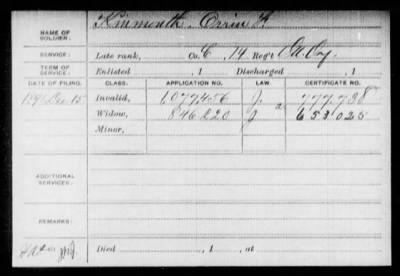 NAME OF SOLDIER: Kinmonth, Orrin F.
SERVICE: Late rank, Co. C, 14 Reg't Pa. Cav.
TERM OF SERVICE: Enlisted , 1 Discharged , 1
DATE OF FILING. CLASS. APPLICATION NO. LAW. CERTIFICATE NO.
1891 Dec 15 Invalid, 1077456 J. 777.738
Widow, 846220 J 653.025
Minor,
ADDITIONAL SERVICES.
REMARKS:
Died , 1 , at